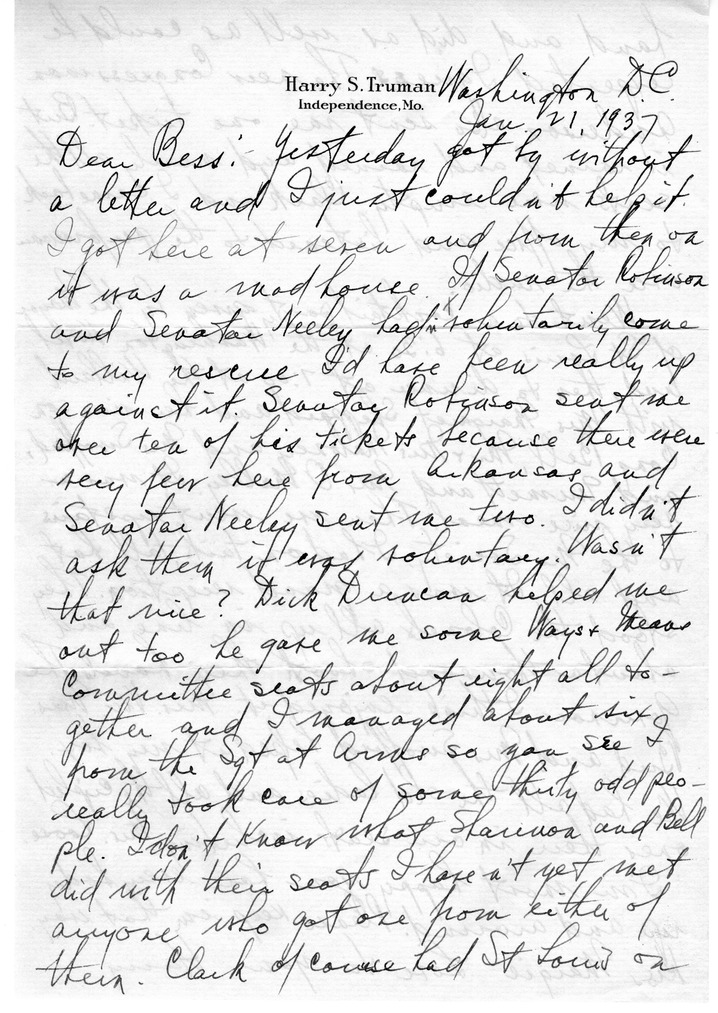 Harry S. Truman
Independence, Mo.
Washington D.C.
Jan. 21, 1937
Dear Bess:- Yesterday got by without
a letter and I just couldn't help it.
I got here at seven and from then on
it was a madhouse. If Senator Robinson
and Senator Neeley hadn't voluntarily come
to my rescue I'd have been really up
against it. Senator Robinson sent me
over ten of his tickets because there were
very few here from Arkansas and
Senator Neeley sent me two. I didn't
ask them it was voluntary. Wasn't
that nice? Dick Duncan helped me
out too he gave me some Ways & Means
Committee seats about eight all to-
gether and I managed about six
from the Sgt at Arms so you see I
really took care of some thirty odd peo-
ple. I don't know what Shannon and Bell
did with their seats I haven't yet met
anyone who got one from either of
them. Clark of course had St Louis on